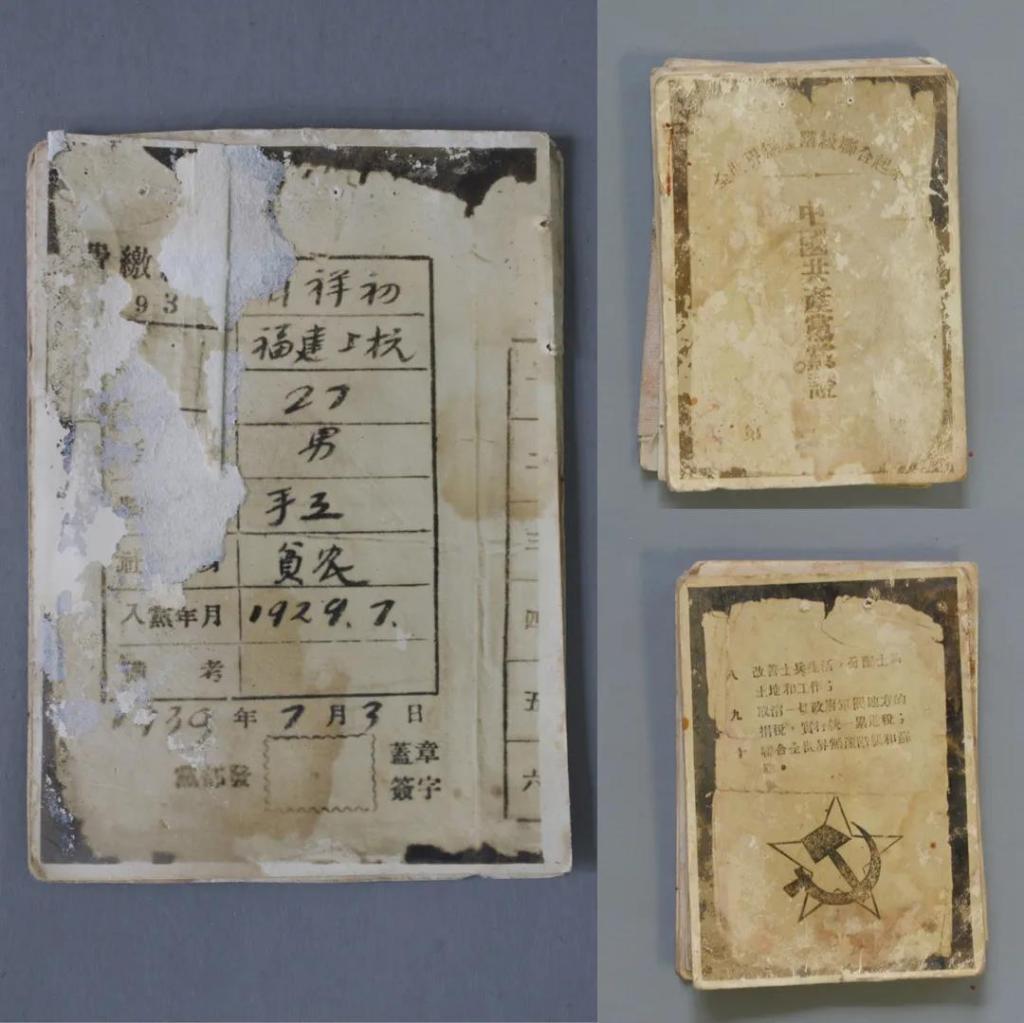 繳
93
祥初
福建上杭
27
男
手工
貧农
社
入黨年月 1929.7.
備考
1930年7月3日
黨部發
蓋章
簽字
一
二
三
四
五
六
階級聯合起
中國共產黨黨證
第
八 改善士兵生活,分配士兵
土地和工作;
九 取消一切政府軍閥地方的
捐稅,實行統一累進稅;
十 聯合全世界無產階級和蘇
聯。